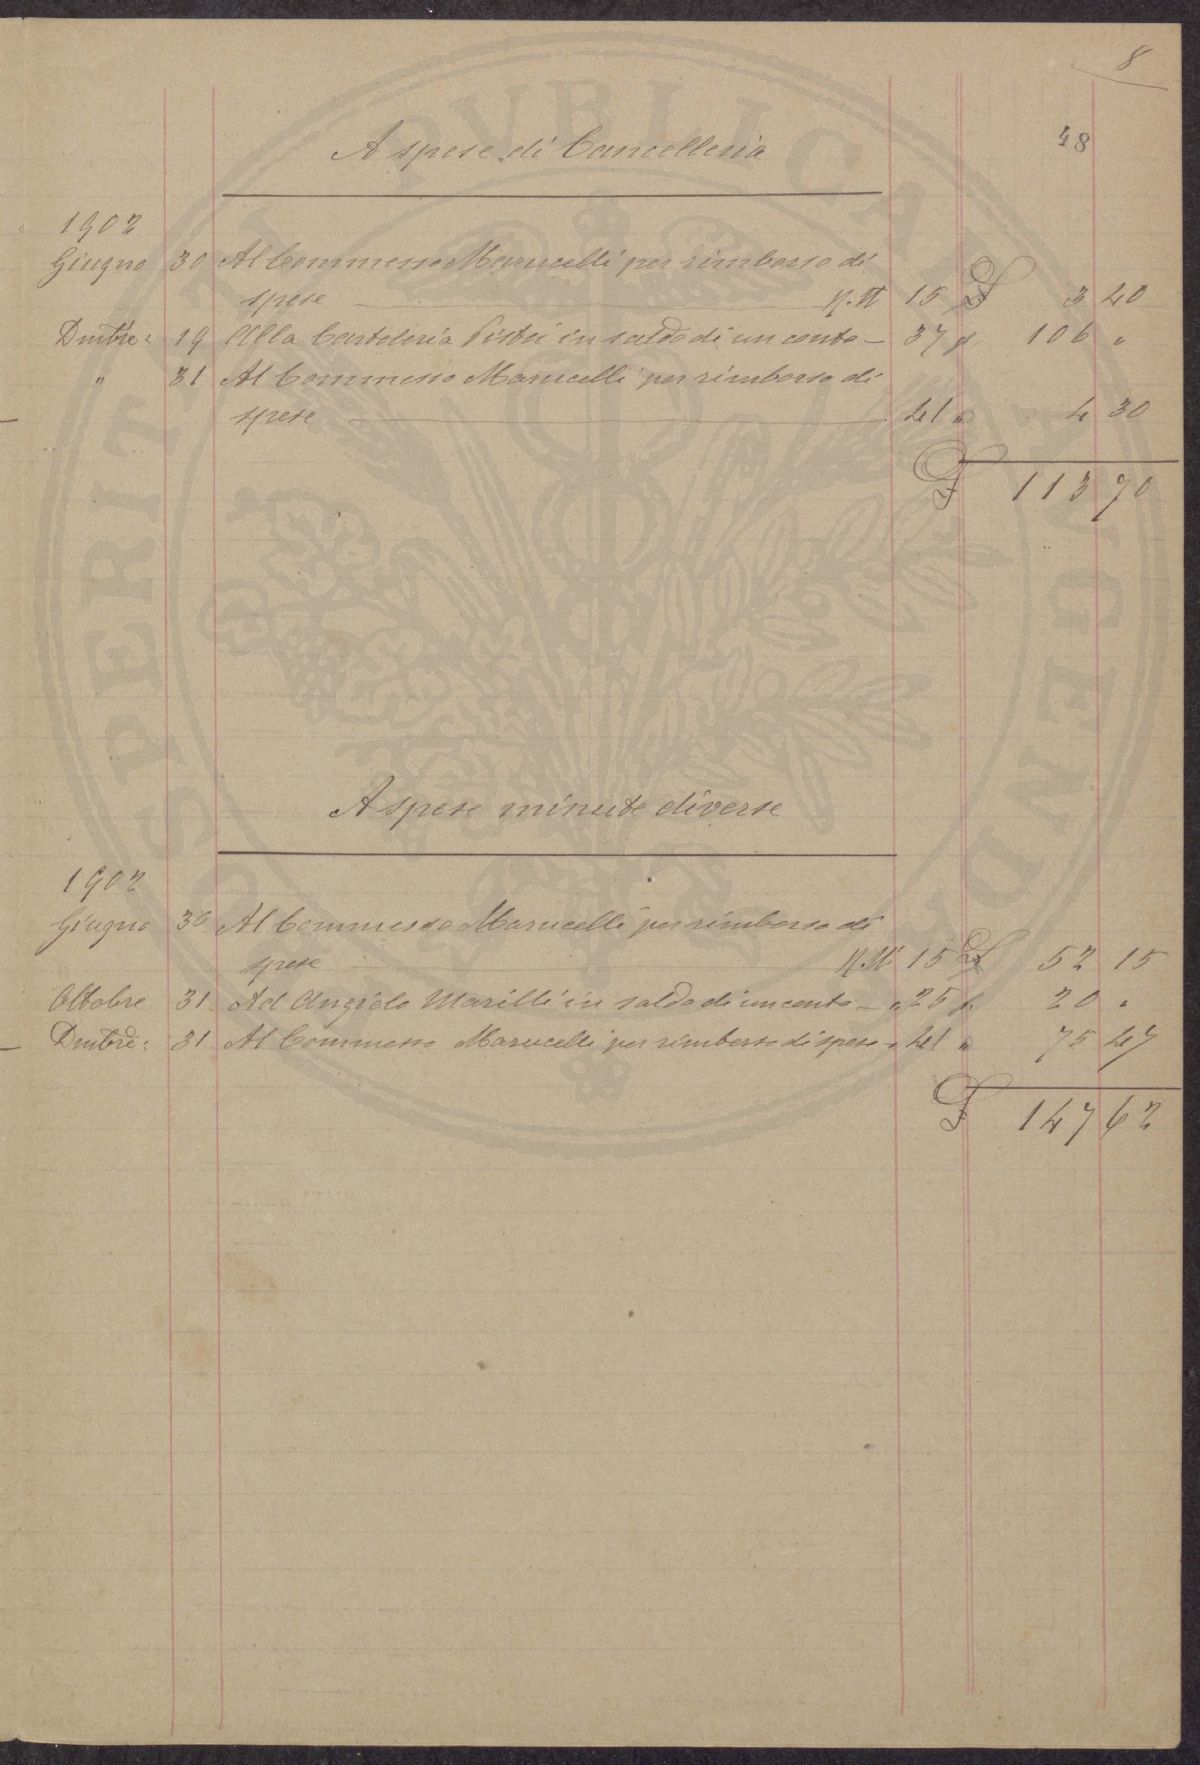 8
48
A spese di Cancelleria
1902
Giugno 30 Al Commesso Marucelli per rimborso di
spese M. N 15 £ 3 40
Dmbre: 19 Alla Cartoleria Pistoi in saldo di un conto — 37 " 106 "
" 31 Al Commesso Marucelli per rimborso di
spese 41 " 4 30
£ 113 70
A spese minute diverse
1902
Giugno 30 Al Commesso Marucelli per rimborso di
spese 15 £ 52 15
Ottobre 31 Ad Angiolo Marilli in saldo di un conto — " 25 " 20 "
Dmbre: 31 Al Commesso Marucelli per rimborso di spese " 41 " 75 47
£ 147 62
PROSPERITATI PVBLICAE AVGENDAE